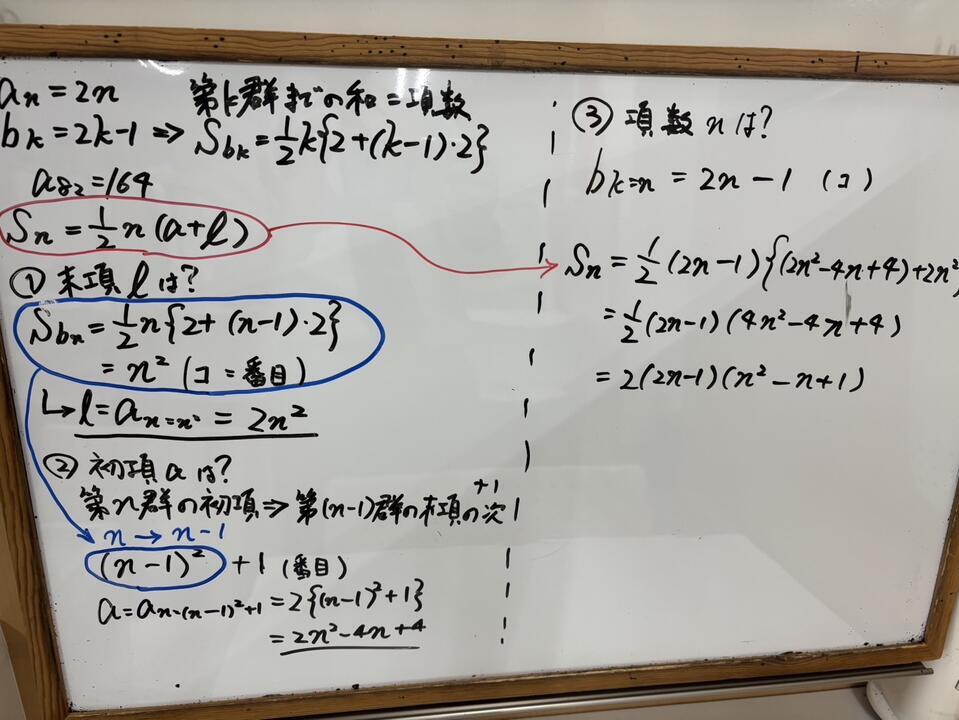 aₙ = 2n 第k群までの和 = 項数
bₖ = 2k-1 ⇒ S_{bₖ} = 1/2 k{2+(k-1)·2}
a₈₂ = 164
Sₙ = 1/2 n (a+l)
① 末項 l は?
S_{bₙ} = 1/2 n{2+(n-1)·2}
= n² (コ = 番目)
↳ l = a_{n=n²} = 2n²
② 初項 a は?
第n群の初項 ⇒ 第(n-1)群の末項の次
+1
n → n-1
(n-1)² + 1 (番目)
a = a_{n=(n-1)²+1} = 2{(n-1)²+1}
= 2n²-4n+4
③ 項数 n は?
b_{k=n} = 2n-1 (コ)
Sₙ = 1/2 (2n-1){(2n²-4n+4)+2n²
= 1/2 (2n-1)(4n²-4n+4)
= 2(2n-1)(n²-n+1)